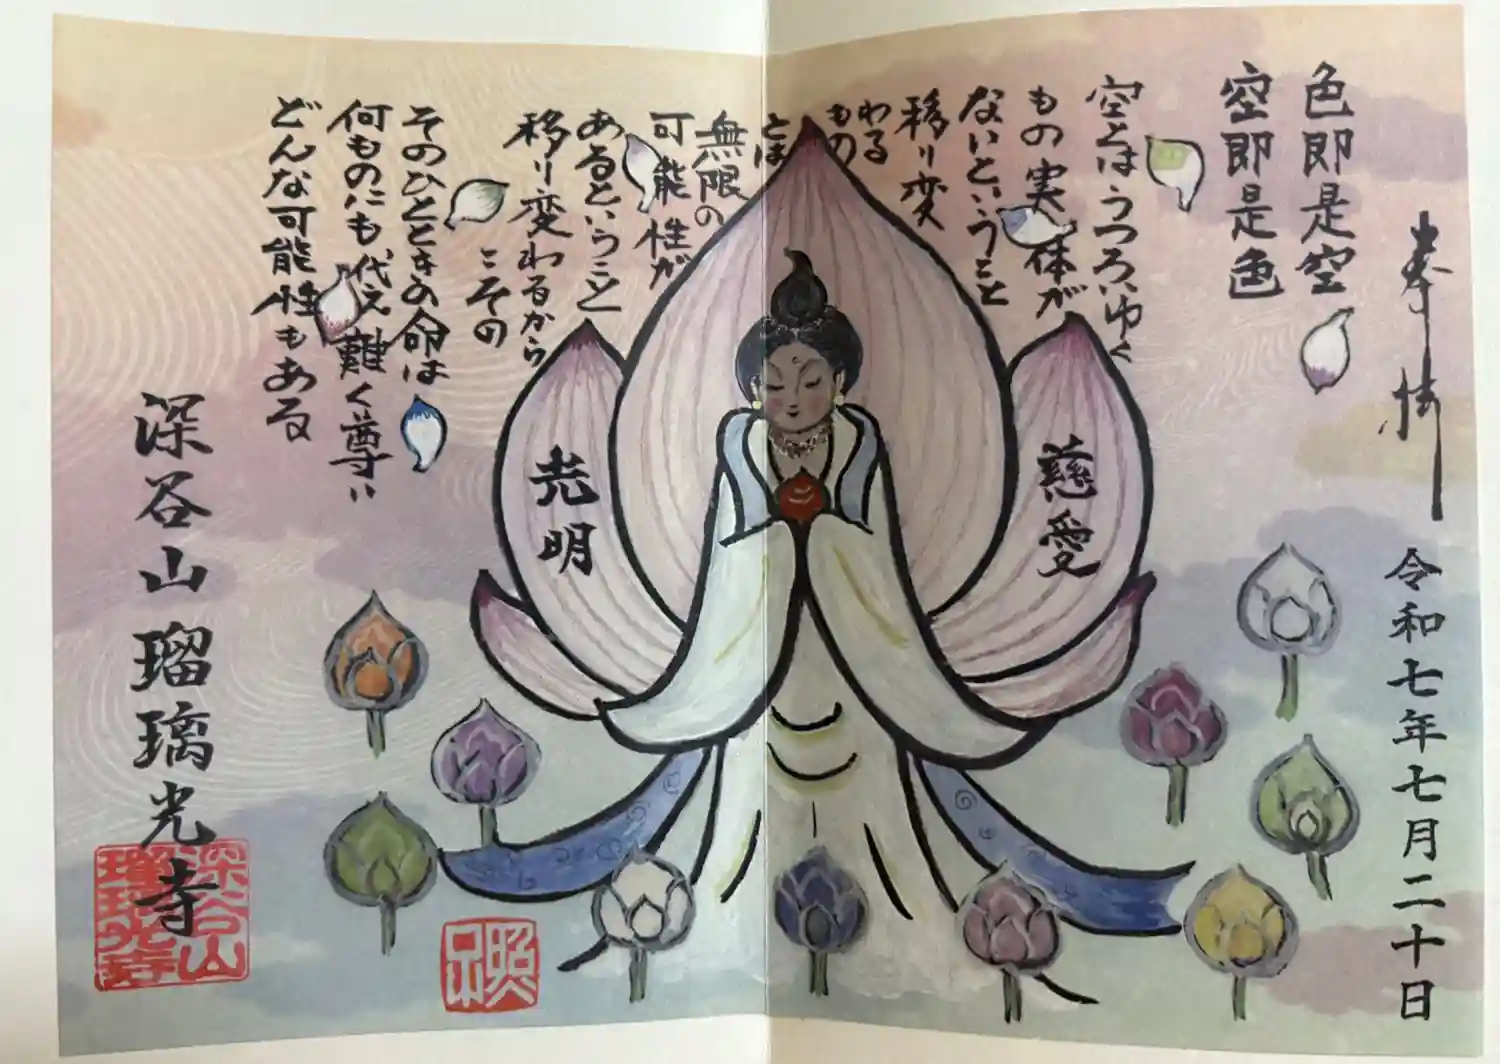 奉拝
令和七年七月二十日
色即是空
空即是色
空とはうつろいゆく
もの実体が
ないということ
移り変
わる
もの
とは
無限の
可能性が
あるということ
移り変わるから
こその
そのひとときの命は
何ものにも代え難く尊い
どんな可能性もある
慈愛
光明
深谷山 瑠璃光寺
深谷山
瑠璃光寺